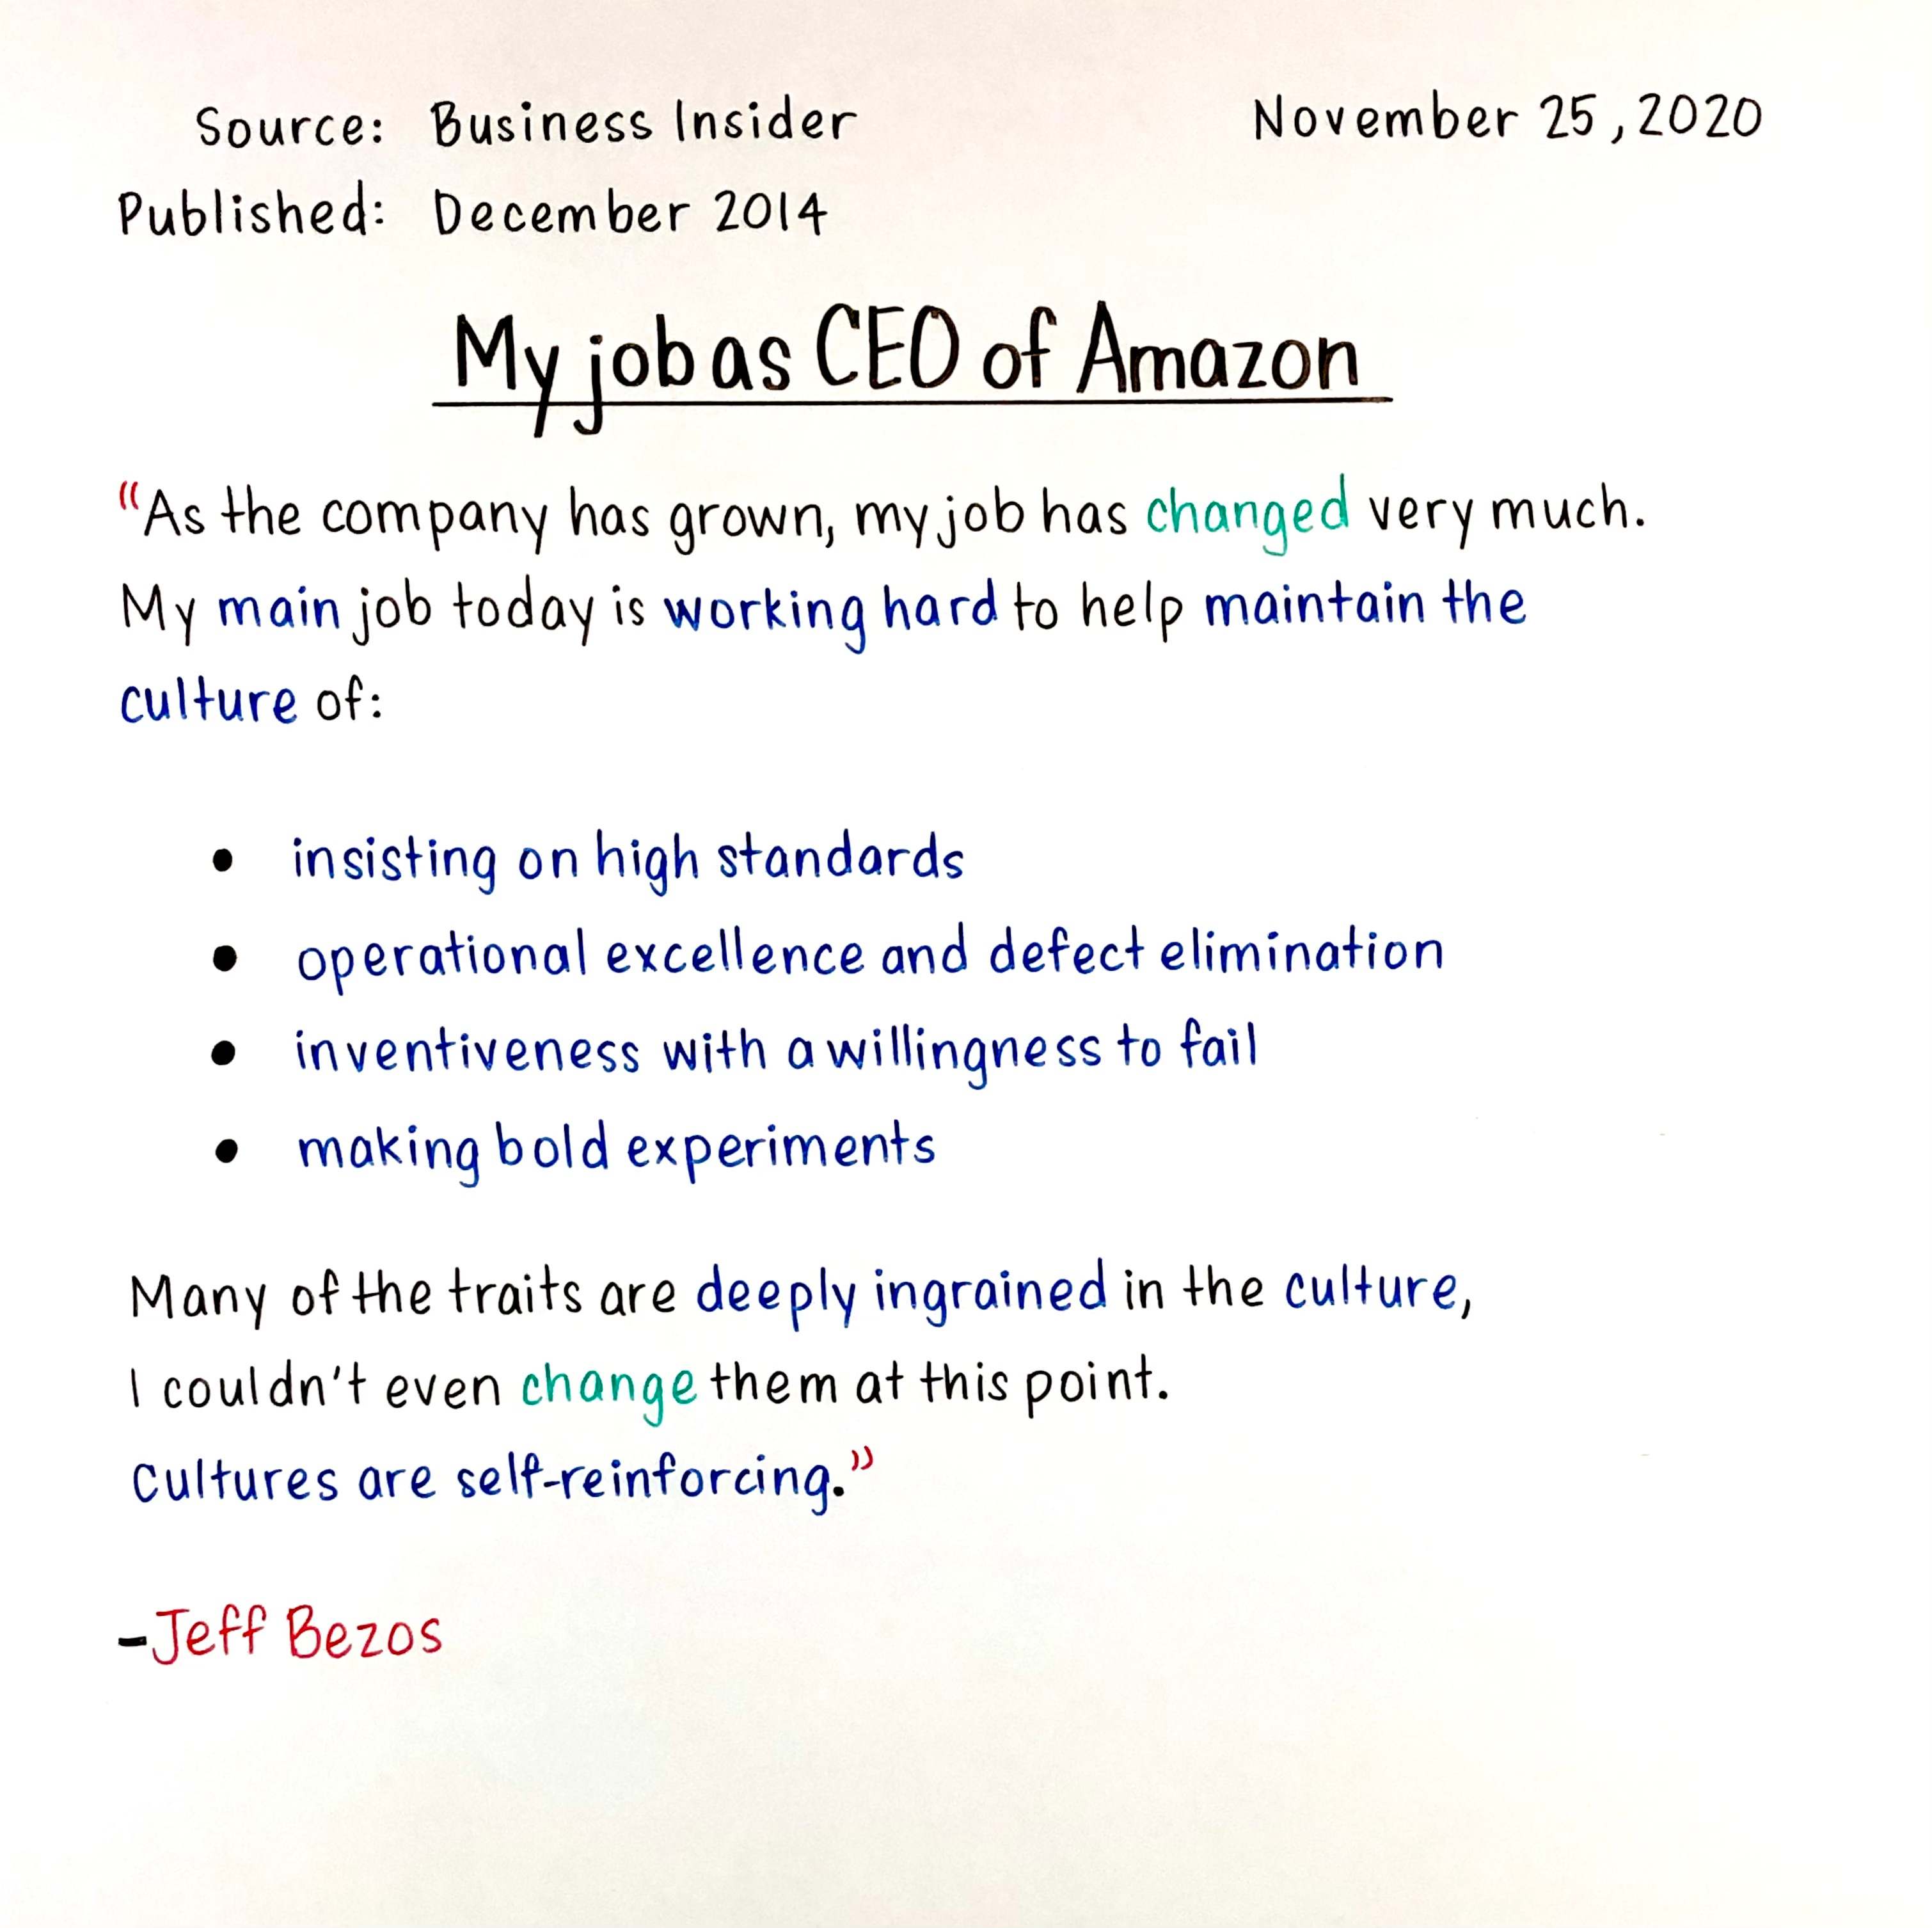 Source: Business Insider
November 25, 2020
Published: December 2014
My job as CEO of Amazon
"As the company has grown, my job has changed very much.
My main job today is working hard to help maintain the
culture of:
• insisting on high standards
• operational excellence and defect elimination
• inventiveness with a willingness to fail
• making bold experiments
Many of the traits are deeply ingrained in the culture,
I couldn't even change them at this point.
Cultures are self-reinforcing."
-Jeff Bezos